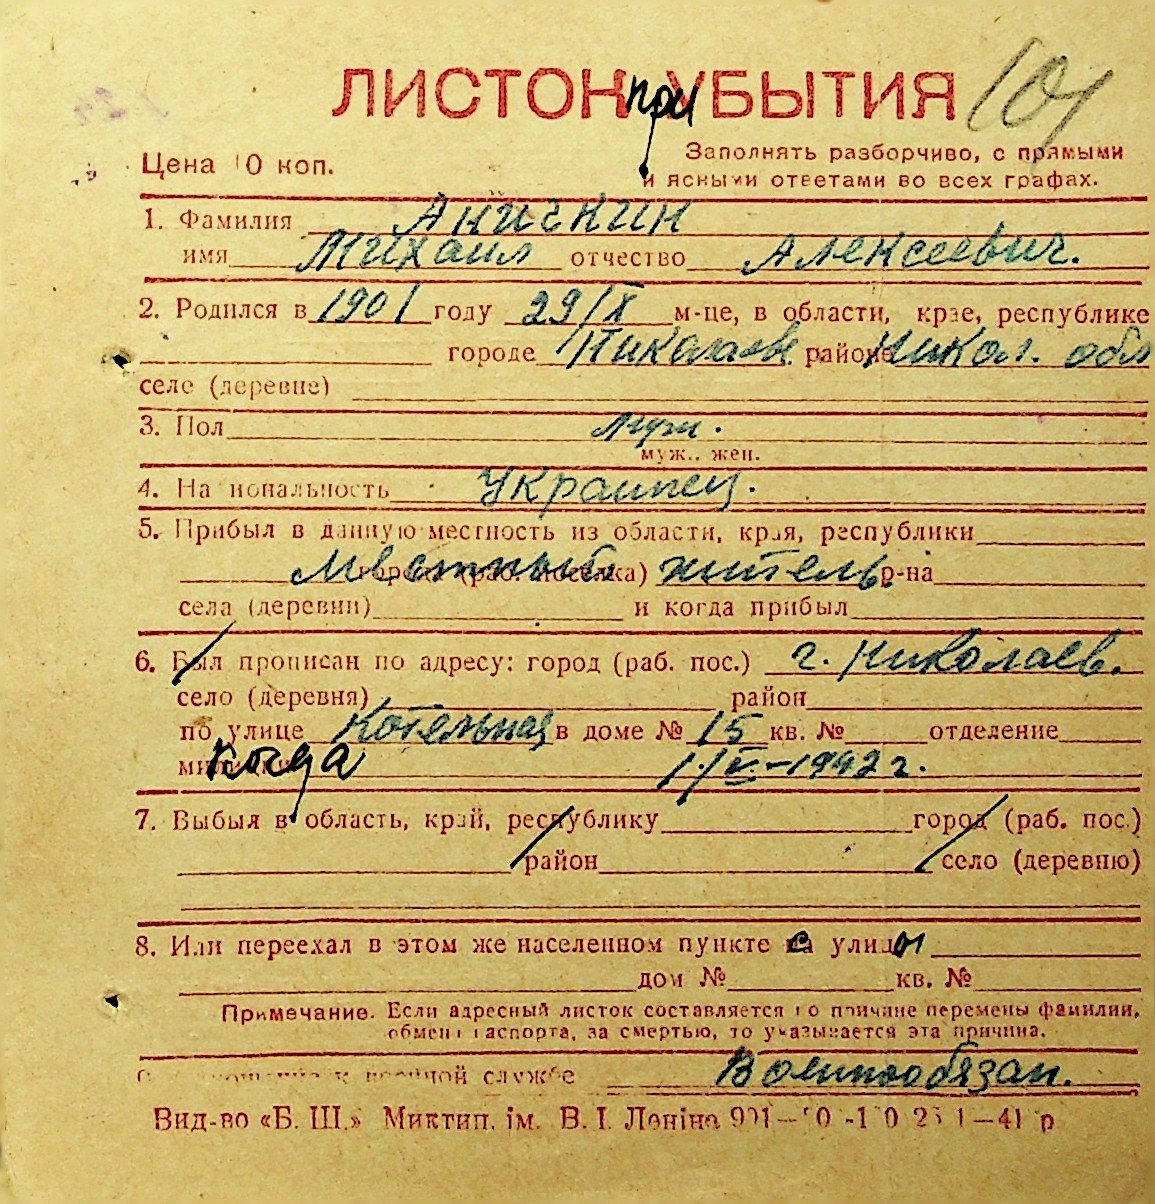 ЛИСТОК при УБЫТИЯ 101
Цена 10 коп.
Заполнять разборчиво, с прямыми
и ясными ответами во всех графах.
1. Фамилия Аничкин
имя Михаил отчество Алексеевич.
2. Родился в 1901 году 29/X м-це, в области, крае, республике
городе Николаев районе Никол. обл
селе (деревне)
3. Пол муж.
муж., жен.
4. Национальность Украинец.
5. Прибыл в данную местность из области, края, республики
города (раб. поселка) Местный житель. р-на
села (деревни) и когда прибыл
6. Был прописан по адресу: город (раб. пос.) г. Николаев.
село (деревня) район
по улице Котельная в доме № 15 кв. № отделение
милиции когда 1/V.-1942 г.
7. Выбыл в область, край, республику город (раб. пос.)
район село (деревню)
8. Или переехал в этом же населенном пункте с улицы
дом № кв. №
Примечание. Если адресный листок составляется по причине перемены фамилии,
обмена паспорта, за смертью, то указывается эта причина.
Отношение к военной службе Военнообязан.
Вид-во «Б. Ш.» Миктип. ім. В. І. Леніна